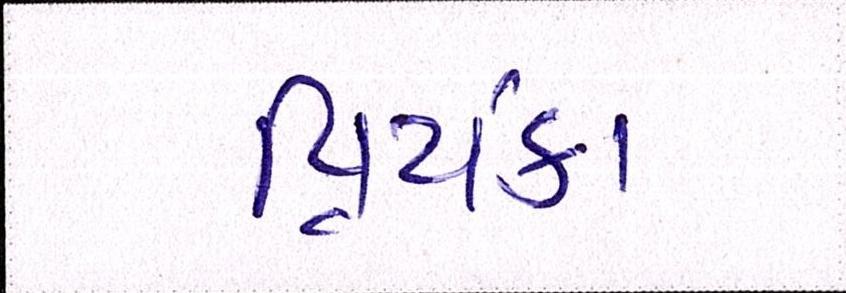 પ્રિયંકા